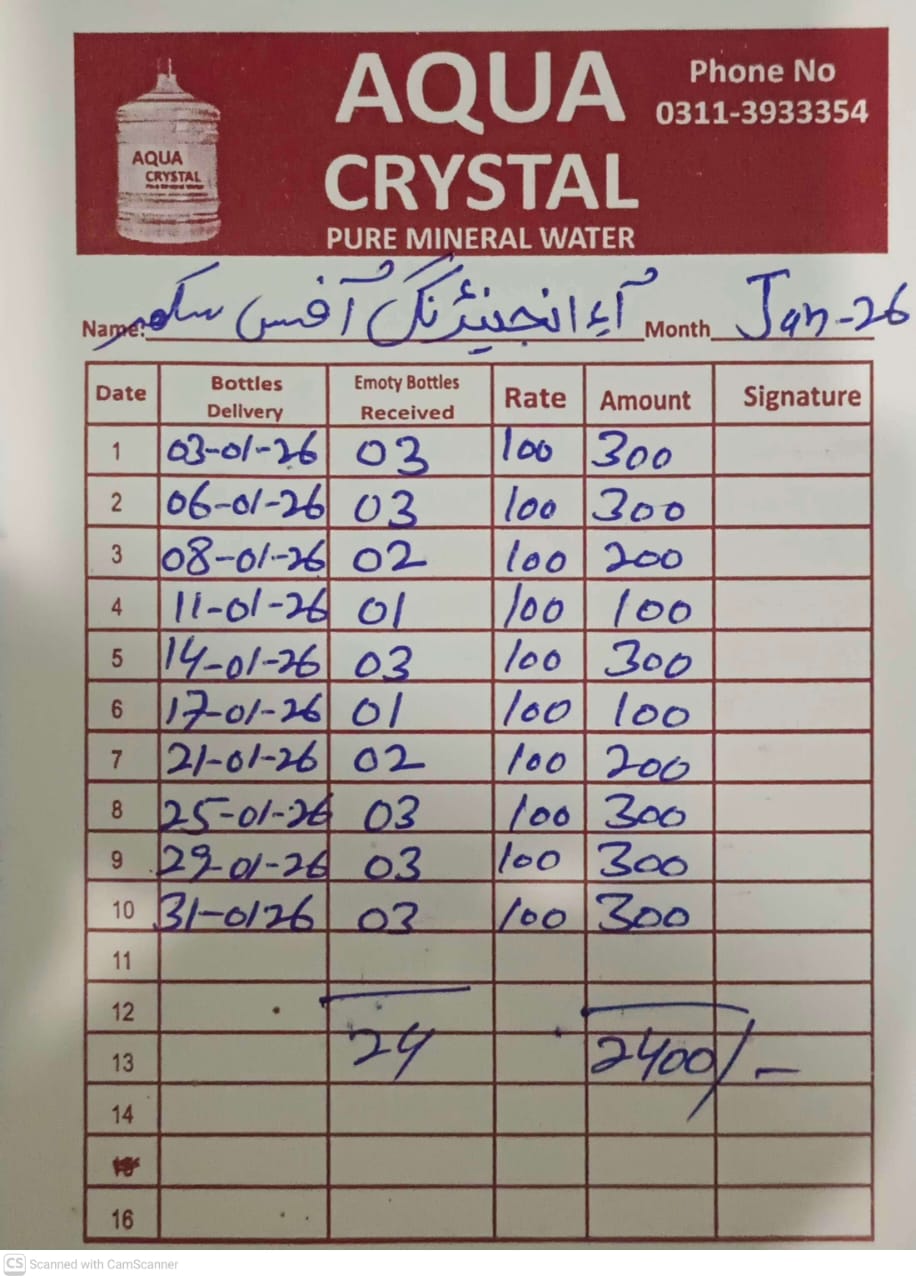 AQUA
CRYSTAL
PURE MINERAL WATER
Phone No
0311-3933354
AQUA
CRYSTAL
Name: آء انجینئرنگ آفس سکھر Month Jan-26
Date Bottles Delivery Emoty Bottles Received Rate Amount Signature
1 03-01-26 03 100 300
2 06-01-26 03 100 300
3 08-01-26 02 100 200
4 11-01-26 01 100 100
5 14-01-26 03 100 300
6 17-01-26 01 100 100
7 21-01-26 02 100 200
8 25-01-26 03 100 300
9 29-01-26 03 100 300
10 31-0126 03 100 300
11
12
13 24 2400/-
14
16
CS Scanned with CamScanner